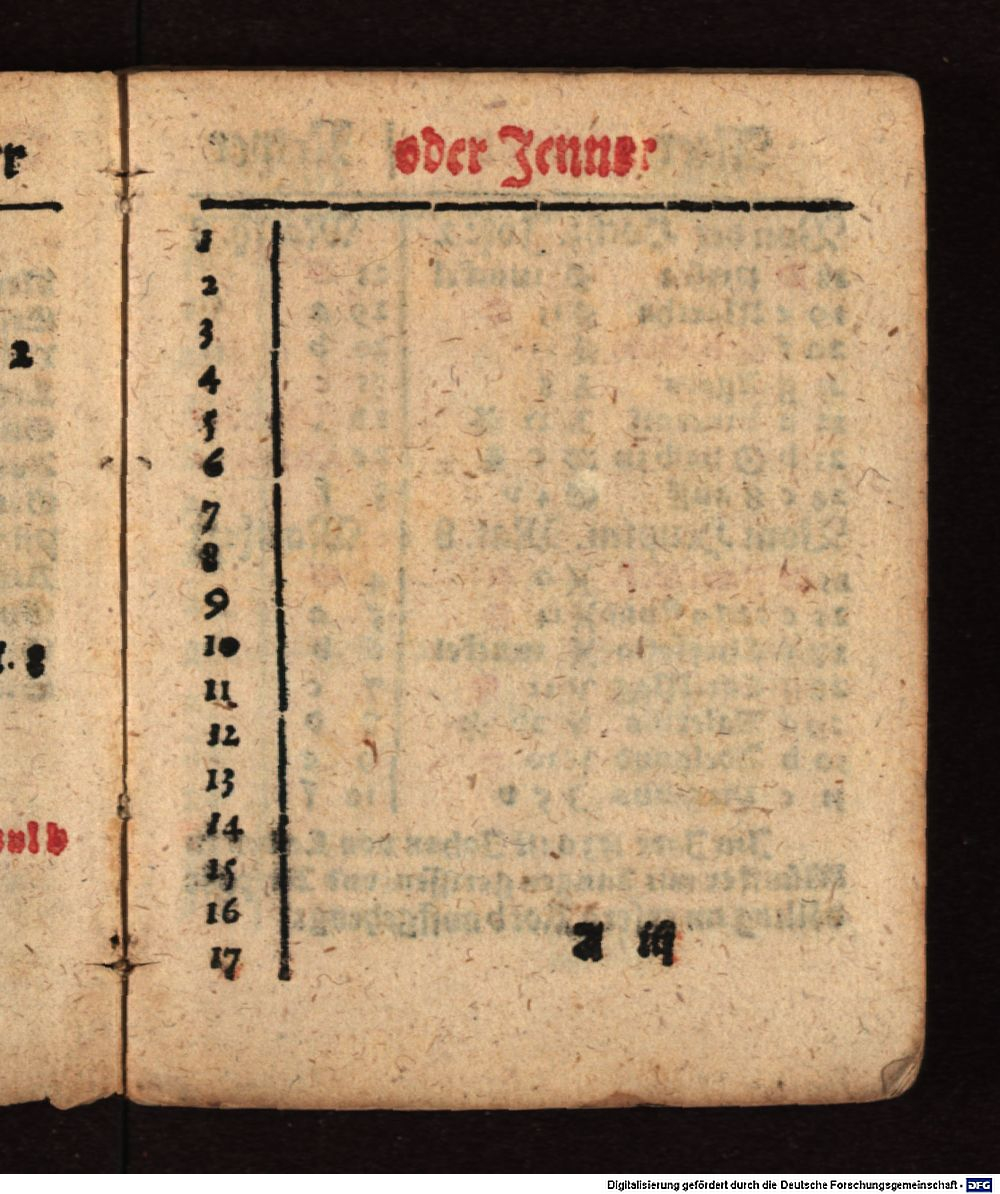 oder Jenner
1
2
3
4
5
6
7
8
9
10
11
12
13
14
15
16
17
A iij
2
Digitalisierung gefördert durch die Deutsche Forschungsgemeinschaft - DFG